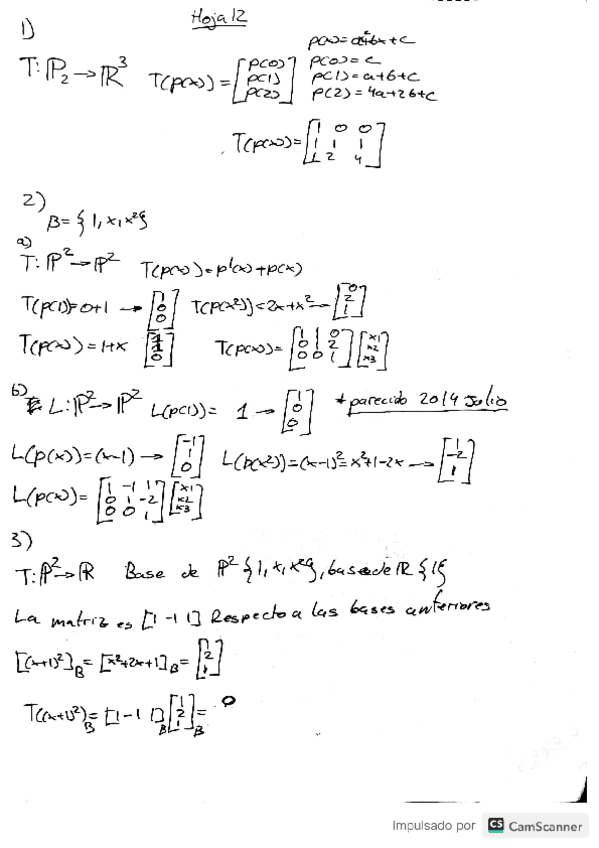 Hoja 12
1)
T: P₂ → R³ T(p(x)) = [p(0) p(1) p(2)] p(x) = ax²+bx+c
p(0) = c
p(1) = a+b+c
p(2) = 4a+2b+c
T(p(x)) = [1 0 0; 1 1 1; 1 2 4]
2)
B = {1, x, x²}
a)
T: P² → P² T(p(x)) = p'(x) + p(x)
T(p(1)) = 0+1 → [1 0 0] T(p(x²)) = 2x+x² → [0 2 1]
T(p(x)) = 1+x [1 1 0] T(p(x)) = [1 1 0; 0 1 2; 0 0 1] [x1 x2 x3]
b)
L: P² → P² L(p(1)) = 1 → [1 0 0] * parecido 2014 Julio
L(p(x)) = (x-1) → [-1 1 0] L(p(x²)) = (x-1)² = x²+1-2x → [1 -2 1]
L(p(x)) = [1 -1 1; 0 1 -2; 0 0 1] [x1 x2 x3]
3)
T: P² → R Base de P² {1, x, x²}, base de R {1}
La matriz es [1 -1 1] Respecto a las bases anteriores
[(x+1)²]_B = [x²+2x+1]_B = [1 2 1]
T((x+1)²)_B = [1 -1 1]_B [1 2 1]_B = 0
Impulsado por CS CamScanner